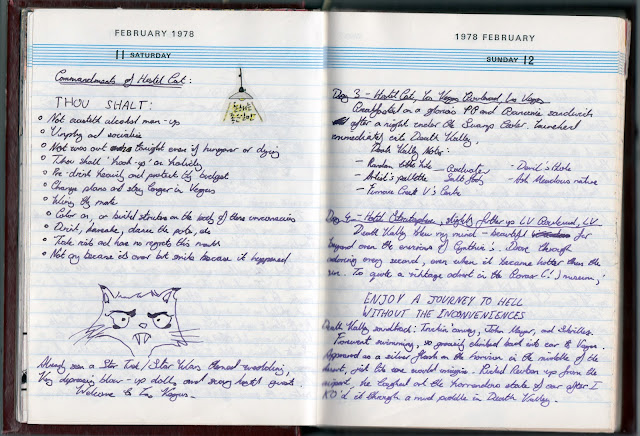 FEBRUARY 1978
11 SATURDAY
Commandments of Hostel Cat:
THOU SHALT:
Not alcohol man-up
Unplug and socialise
Not wuss out tonight even if hungover or dying
Thou shall 'hook-up' on holiday
Pre-drink heavily and protect thy budget
Change plans and stay longer in Vegas
on, or build structures on the body of those unconscious
Drink, karaoke, dance the pole, etc
Take risks and have no regrets this month
Not cry because it's over but smile because it happened
Already seen a Star Trek/Star Wars themed wedding,
Very depressing blow-up dolls, and many hostel guests.
Welcome to Las Vegas.
1978 FEBRUARY
SUNDAY 12
Day 3 - Hostel Cat, Las Vegas Boulevard, Las Vegas
Breakfasted on a glorious PB and Banana sandwich
after a night under the Swamp Cooler. Launched
immediately into Death Valley.
Death Valley Notes:
- Random little
- Artist's pallette
- Furnace Creek V's Centre
- Badwater
Salt
- Devil's Hole
- Ash Meadows native
Day 4 - Hotel Stratosphere, slightly further up LV Boulevard, LV
Death Valley blew my mind - beautiful far
beyond even the environs of . Drove through
adoring every second, even when it became hotter than the
sun. To quote a vintage advert in the Borax (!) museum,'
ENJOY A JOURNEY TO HELL
WITHOUT THE INCONVENIENCES
Death Valley soundtrack: Truckin' , John Mayer, and Skrillex.
swimming, so climbed back into car to Vegas.
Appeared as a silver on the horizon in the middle of the
desert, just like some model . Picked up from the
airport, he laughed at the horrendous state of car after I
KO'd it through a mud puddle in Death Valley.